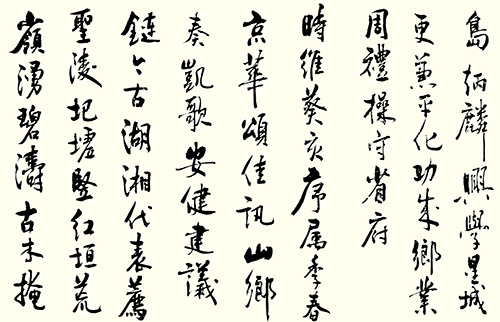 島炳麟興學星城
更兼平化助成鄉業
周禮操守省府
時維葵亥序属季春
京華頌佳訊山鄉
奏凱歌安健建議
鏈今古湖湘代表薦
聖陵圯墟竪紅垣荒
嶺湧碧濤古木掩